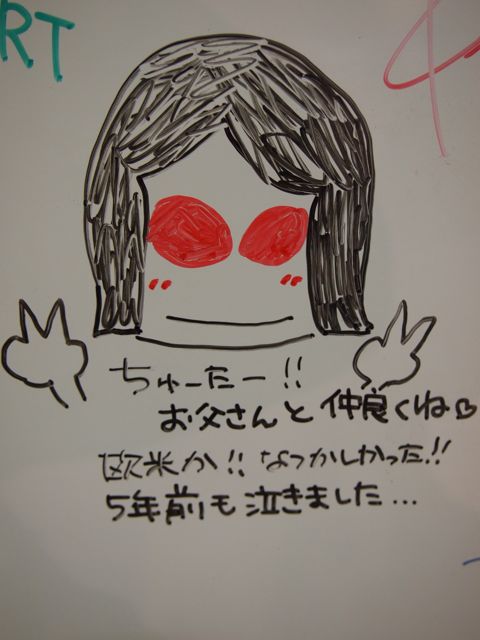 RT
ちゅーたー!!
お父さんと仲良くね♡
欧米か!!なつかしかった!!
5年前も泣きました...